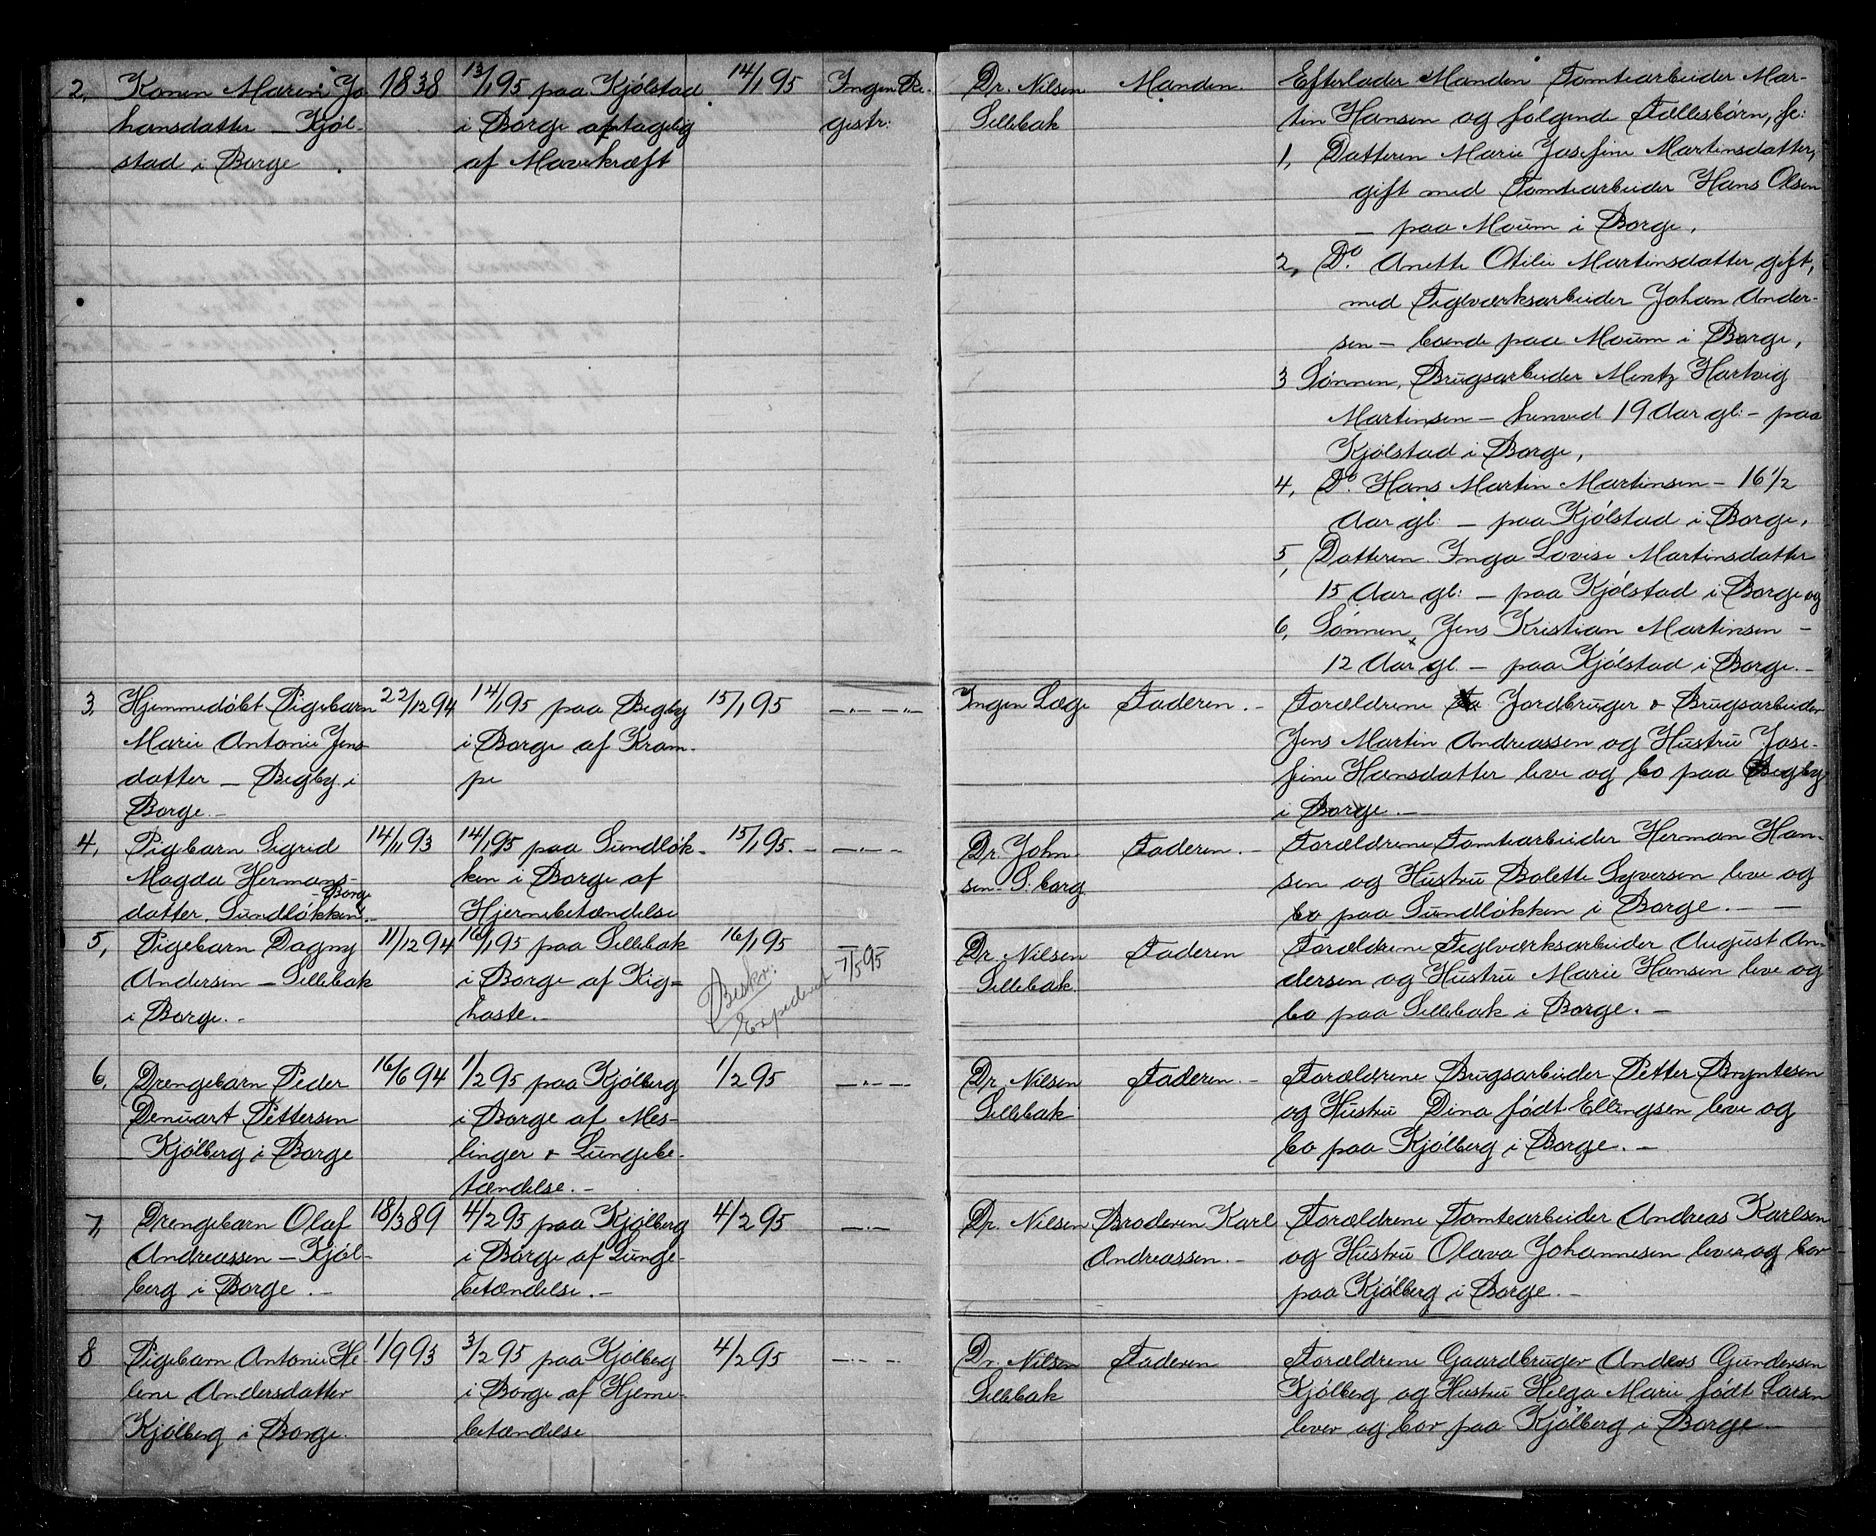 2, Konen Maren Jo- 1838 13/1 95 paa Kjölstad 14/1 95 Ingen Re- Dr. Nilsen Manden. Efterlader Manden Tomtearbeider Mar-
hansdatter – Kjöl- i Borge af gestr: Sellebak tin Hansen og følgende Fællesbörn,
stad i Borge af Mavekræft 1, Datteren Marie Josefine Martinsdatter,
gift med Tomtearbeider Hans Olsen
– paa Moum i Borge,
2, Do. Anette Otilie Martinsdatter gift,
med Teglværksarbeider Johan Ander-
sen – boende paa Moum i Borge,
3 Sönnen, Brugsarbeider Mentz Hartvig
Martinsen – henved 19 Aar gl: – paa
Kjölstad i Borge,
4, Do. Hans Martin Martinsen – 16 1/2
Aar gl: – paa Kjölstad i Borge,
5, Datteren Inga Lovise Martinsdatter
15 Aar gl: – paa Kjölstad i Borge og
6, Sönnen, Jens Kristian Martinsen –
12 Aar gl. – paa Kjölstad i Borge. –
3, Hjemmedöbt Pigebarn 22/12 94 14/1 95 paa Begby 15/1 95 – „ – „ – Ingen Læge Faderen. – Forældrene Jordbruger & Brugsarbeider
Marie Antonie Jens- i Borge af Kram- Jens Martin Andreassen og Hustru Jose-
datter – Begby i pe fine Hansdatter leve og bo paa Begby
Borge. – i Borge. –
4, Pigebarn Sigrid 14/11 93 14/1 95 paa Sundlök- 15/1 95. – – „ – Dr. John- Faderen. – Forældrene Tomtearbeider Herman Han-
Magda Hermans- ken i Borge af sen S: borg sen og Hustru Bolette Syversen leve og
datter, Sundlökken – Borge. Hjernebetændelse bo paa Sundlökken i Borge. – –
5, Pigebarn Dagny 11/12 94 16/1 95 paa Sellebak 16/1 95 7/5 95 Dr. Nilsen Faderen Forældrene Teglværksarbeider August An-
Andersen – Sellebak i Borge af Kig- Beskr: Sellebak. dersen og Hustru Marie Hansen leve og
i Borge. – hoste. – Expederet bo paa Sellebak i Borge. –
6, Drengebarn Peder 16/6 94 1/2 95 paa Kjölberg 1/2 95 – „ – Dr. Nilsen Faderen. – Forældrene Brugsarbeider Petter Bryntesen
Denuart Pettersen i Borge af Mes- Sellebak og Hustru Dina födt Ellingsen leve og
– Kjölberg i Borge linger & Lungebe- bo paa Kjölberg i Borge. –
tændelse. –
7, Drengebarn Olaf 18/3 89 4/2 95 paa Kjölberg 4/2 95 – „ – Dr. Nilsen Broderen Karl Forældrene Tomtearbeider Andreas Karlsen
Andreassen – Kjöl- i Borge af Lunge- Andreassen. – og Hustru Olava Johannesen lever og bor
berg i Borge. – betændelse. – paa Kjölberg i Borge. –
8 Pigebarn Antonie He- 1/9 93 3/2 95 paa Kjölberg 4/2 95 – „ – Dr. Nilsen Faderen Forældrene Gaardbruger Anders Gundersen
lene Andersdatter i Borge af Hjerne- Sellebak Kjölberg og Hustru Helga Marie födt Larsen
Kjölberg i Borge. betændelse lever og bor paa Kjölberg i Borge –